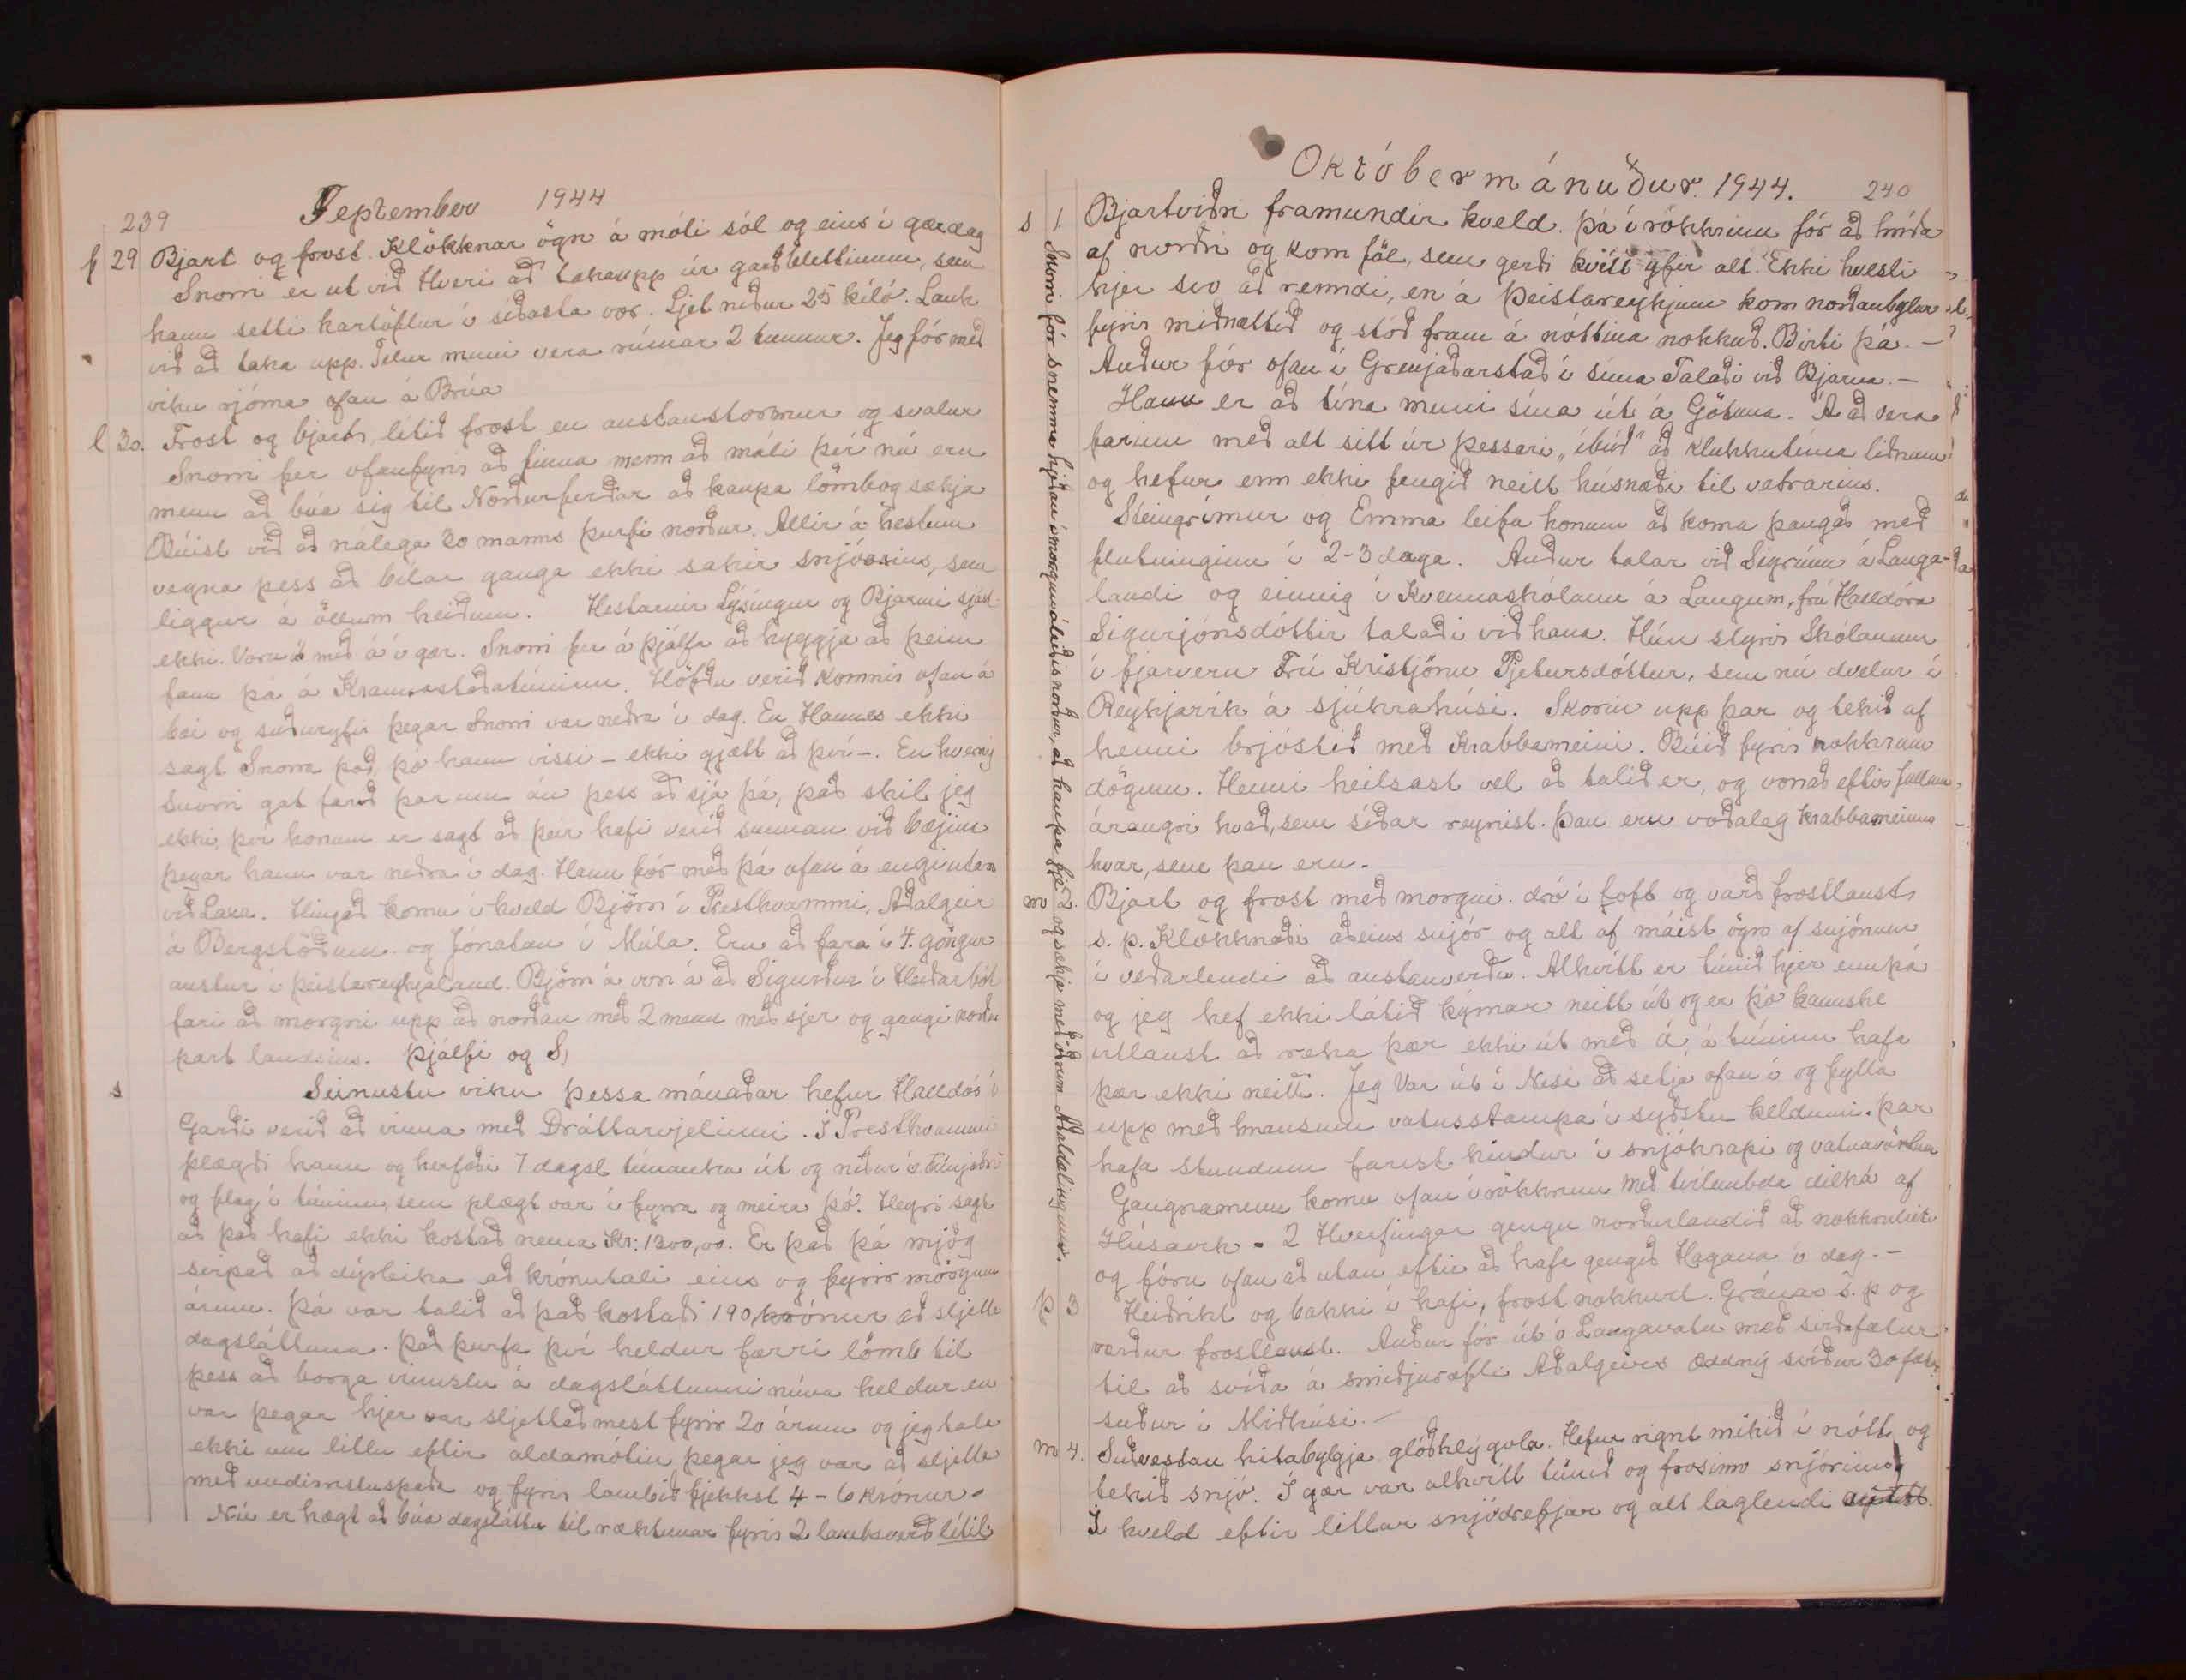 239 September 1944
f 29 Bjart og frost. Klökknar ögn á móti sól og eins í gærdag
Snorri er út við Hveri að taka upp úr garðblettinum, sem
hann setti kartöflur í síðasta vor. Ljet niður 25 kíló. Lauk
við að taka upp. Telur muni vera rúmar 2 tunnur. Jeg fór með
viku rjóma ofan á Brúa
l 30. Frost og bjart, lítið frost en austanstormur og svalur
Snorri fer ofanfyrir að finna menn að máli því nú eru
menn að búa sig til Norðurferðar að kaupa lömb og sækja
Búist við að nálega 20 manns þurfi norður. Allir á hestum
vegna þess að bílar ganga ekki sakir snjósins, sem
liggur á öllum heiðum. Hestarnir Lýsingur og Bjarmi sjást
ekki. Voru með á í gær. Snorri fer á Þjálfa að hyggja að þeim
fann þá á Kraunastaðatúninu. Höfðu verið komnir ofan á
bæi og suðuryfir þegar Snorri var neðra í dag. En Hannes ekki
sagt Snorra það, þó hann vissi - ekki gjætt að því -. En hvernig
Snorri gat farið þar um án þess að sjá þá, það skil jeg
ekki, því honum er sagt að þeir hafi verið sunnan við bæjinn
þegar hann var neðra í dag. Hann fór með þá ofan á engi utan
við Laxá. Hingað komu í kveld Björn í Presthvammi, Aðalgeir
á Bergstöðum og Jónatan í Múla. Eru að fara í 4. göngur
austur í Þeistareykjaland. Björn á von á að Sigurður í Heiðarbót
fari að morgni upp að norðan með 2 menn með sjer og gangi norður
part landsins. Þjálfi og S,
s Seinustu viku þessa mánaðar hefur Halldór í
Garði verið að vinna með Dráttarvjelinni. Í Presthvammi
plægði hann og herfaði 7 dagsl túnauka út og niður í Túnjaðri
og flag í túninu, sem plægt var í fyrra og meira þó. Hegri sagt
að það hafi ekki kostað nema Kr: 1300,00. Er það þá mjög
svipað að dýrleika að krónutali eins og fyrir mörgum
árum. Þá var talið að það kostaði 190 krónur að sljetta
dagsláttuna. Það þurfa því heldur færri lömb til
þess að borga vinnslu á dagsláttunni núna heldur en
var þegar hjer var sljettað mest fyrir 20 árum og jeg tala
ekki um litlu eftir aldamótin þegar jeg var að sljetta
með undirristuspaða og fyrir lambið fjekkst 4 - 6 krónur.
Nú er hægt að búa dagsláttu til ræktunar fyrir 2 lambsverð lítil
Októbermánuður. 1944. 240
s 1 Bjartviðri framundir kveld. Þá í rökkrinu fór að hríða
af norðri og kom föl, sem gerði hvítt yfir allt. Ekki hvesti
hjer svo að renndi, en á Þeistareykjum kom norðanbylur
fyrir miðnættið og stóð fram á nóttina nokkuð. Birti þá. -
Auður fór ofan í Grenjaðarstað í síma Talaði við Bjarna. -
Hann er að tína muni sína út á Götuna. Á að vera
farinn með allt sitt úr þessari „íbúð" að klukkutíma liðnum
og hefur enn ekki fengið neitt húsnæði til vetrarins.
Steingrímur og Emma leifa honum að koma þangað með
flutninginn í 2-3 daga. Auður talar við Sigrúnu á Lauga-
landi og einnig í Kvennaskólann á Laugum, frú Halldóra
Sigurjónsdóttir talaði við hana. Hún stýrir Skólanum
í fjarveru Frú Kristjönu Pjetursdóttur, sem nú dvelur í
Reykjavík á sjúkrahúsi. Skorin upp þar og tekið af
henni brjóstið með Krabbameini. Búið fyrir nokkrum
dögum. Henni heilsast vel að talið er, og vonað eftir fullum
árangri hvað, sem síðar reynist. Þau eru voðaleg krabbameinin
hvar, sem þau eru.
m 2. Bjart og frost með morgni. dró í loft og varð frostlaust
s. p. Klökknaði aðeins snjór og allt af máist ögn af snjónum
í veðarlendi að austanverðu. Alhvítt er túnið hjer ennþá
og jeg hef ekki látið kýrnar neitt út og er þó kannske
illaust að reka þær ekki út með á, á túninu hafa
þær ekki neitt. Jeg Var út í Nesi að setja ofan í og fylla
upp með hnausum vatnsstampa í syðstu keldunni. Þar
hafa stundum farist kindur í snjókrapi og vatnavöxtum
Gangnamenn komu ofan í rökkrinu með tvílembda dilká af
Húsavík - 2 Hverfingar gengu norðurlandið að nokkruleiti
og fóru ofan að utan eftir að hafa gengið Hagana í dag. -
þ 3 Heiðríkt og bakki í hafi, frost nokkurt. Gránar s. p og
verður frostlaust. Auður fór út í Langavatn með sviðafætur
til að svíða á smiðjuræfli Aðalgeirs Oddný svíður 30 fætur
suður í Miðhúsi. -
m 4. Suðvestan hitabylgja glóðhlý gola. Hefur rignt mikið í nótt og
tekið snjó. Í gær var alhvítt túnið og frosinn snjórinn
Í kveld eftir litlar snjódrefjar og allt láglendi
Snorri fór snemma hjeðan í morgun áleiðis norður, að kaupa fje og sækja með öðrum Aðaldælingum.